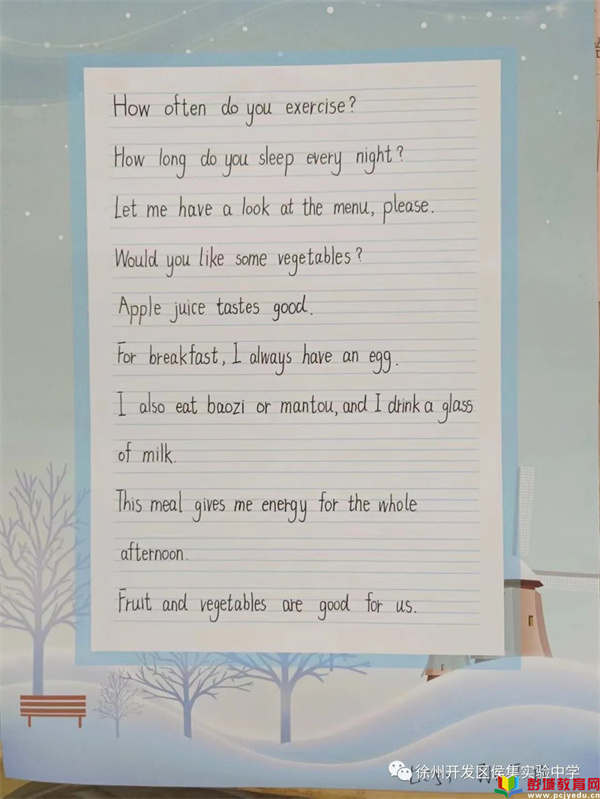 How often do you exercise?
How long do you sleep every night?
Let me have a look at the menu, please.
Would you like some vegetables?
Apple juice tastes good.
For breakfast, I always have an egg.
I also eat baozi or mantou, and I drink a glass
of milk.
This meal gives me energy for the whole
afternoon.
Fruit and vegetables are good for us.
徐州开发区侯集实验中学
彭城教育网
www.pcjyedu.cn